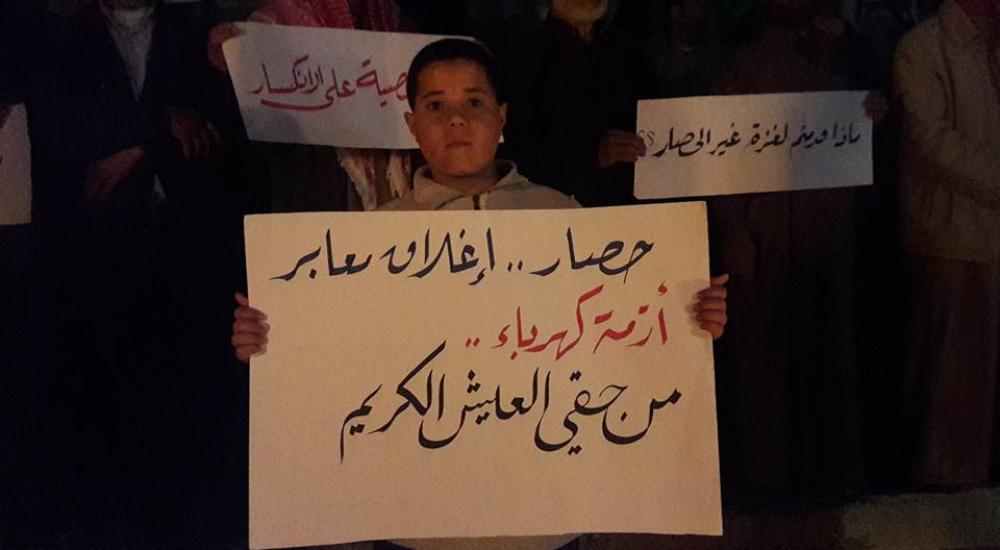 عصية على الانكسار
ماذا قدمتم لغزة غير الحصار؟؟
حصار .. إغلاق معابر
أزمة كهرباء ..
من حقي العيش الكريم